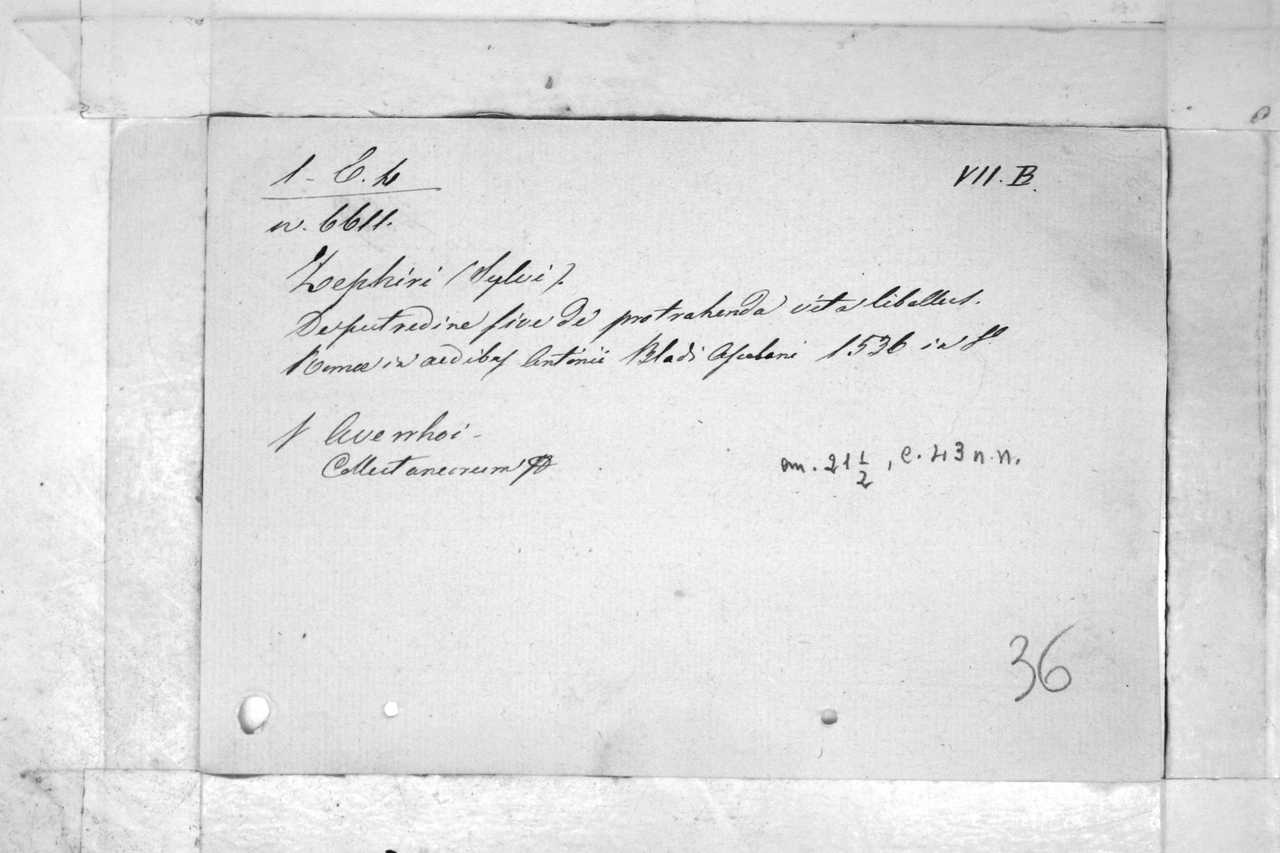 1 - E. 4
VII. B.
n. 6611.
Zephiri (Sylvi).
De putredine sive de protrahenda vita libellus.
Romae in aedibus Antonii Bladi Asulani 1536 in 8
Averrhoi -
Collectaneorum
m. 21 1/2, c. 43 n.n.
36